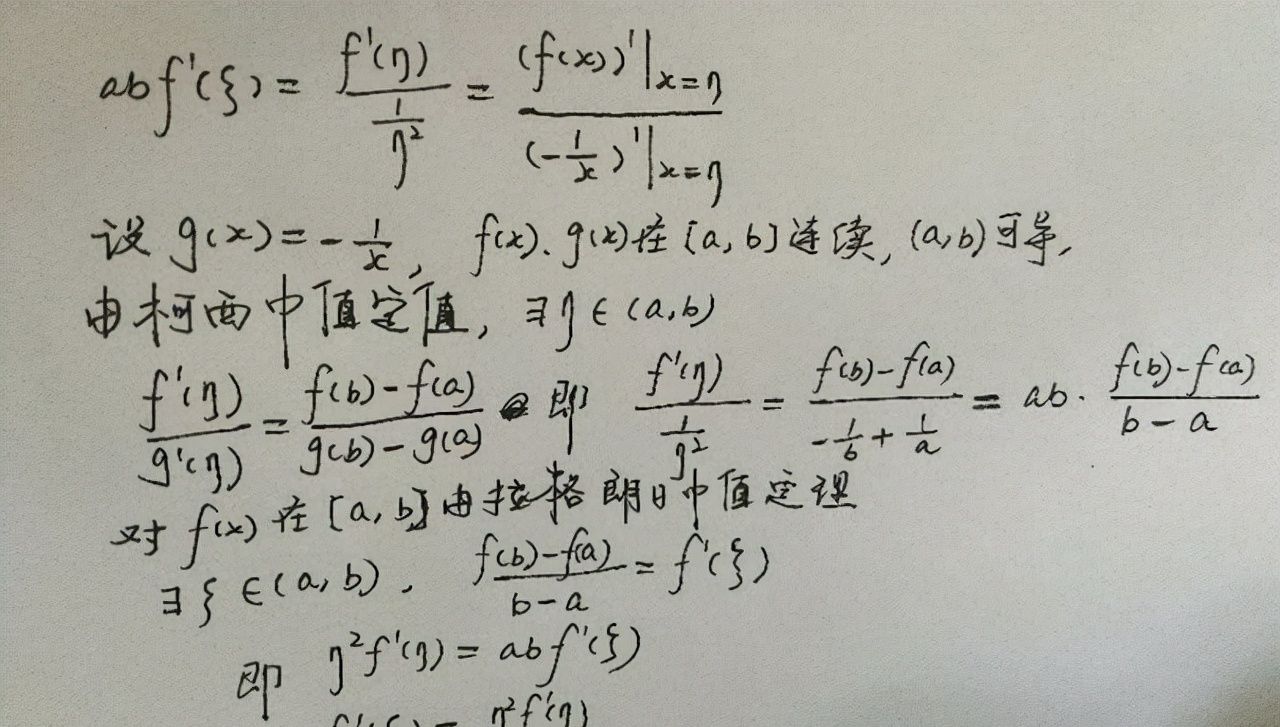 abf'(ξ) = f'(η) / (1/η²) = (f(x))'|x=η / (-1/x)'|x=η
设 g(x) = -1/x, f(x)、g(x)在[a,b]连续, (a,b)可导,
由柯西中值定值, ∃η∈(a,b)
f'(η)/g'(η) = (f(b)-f(a))/(g(b)-g(a)) 即 f'(η)/(1/η²) = (f(b)-f(a))/(-1/b+1/a) = ab·(f(b)-f(a))/(b-a)
对 f(x) 在[a,b]由拉格朗日中值定理
∃ξ∈(a,b), (f(b)-f(a))/(b-a) = f'(ξ)
即 η²f'(η) = abf'(ξ)
f'(ξ) = η²f'(η)